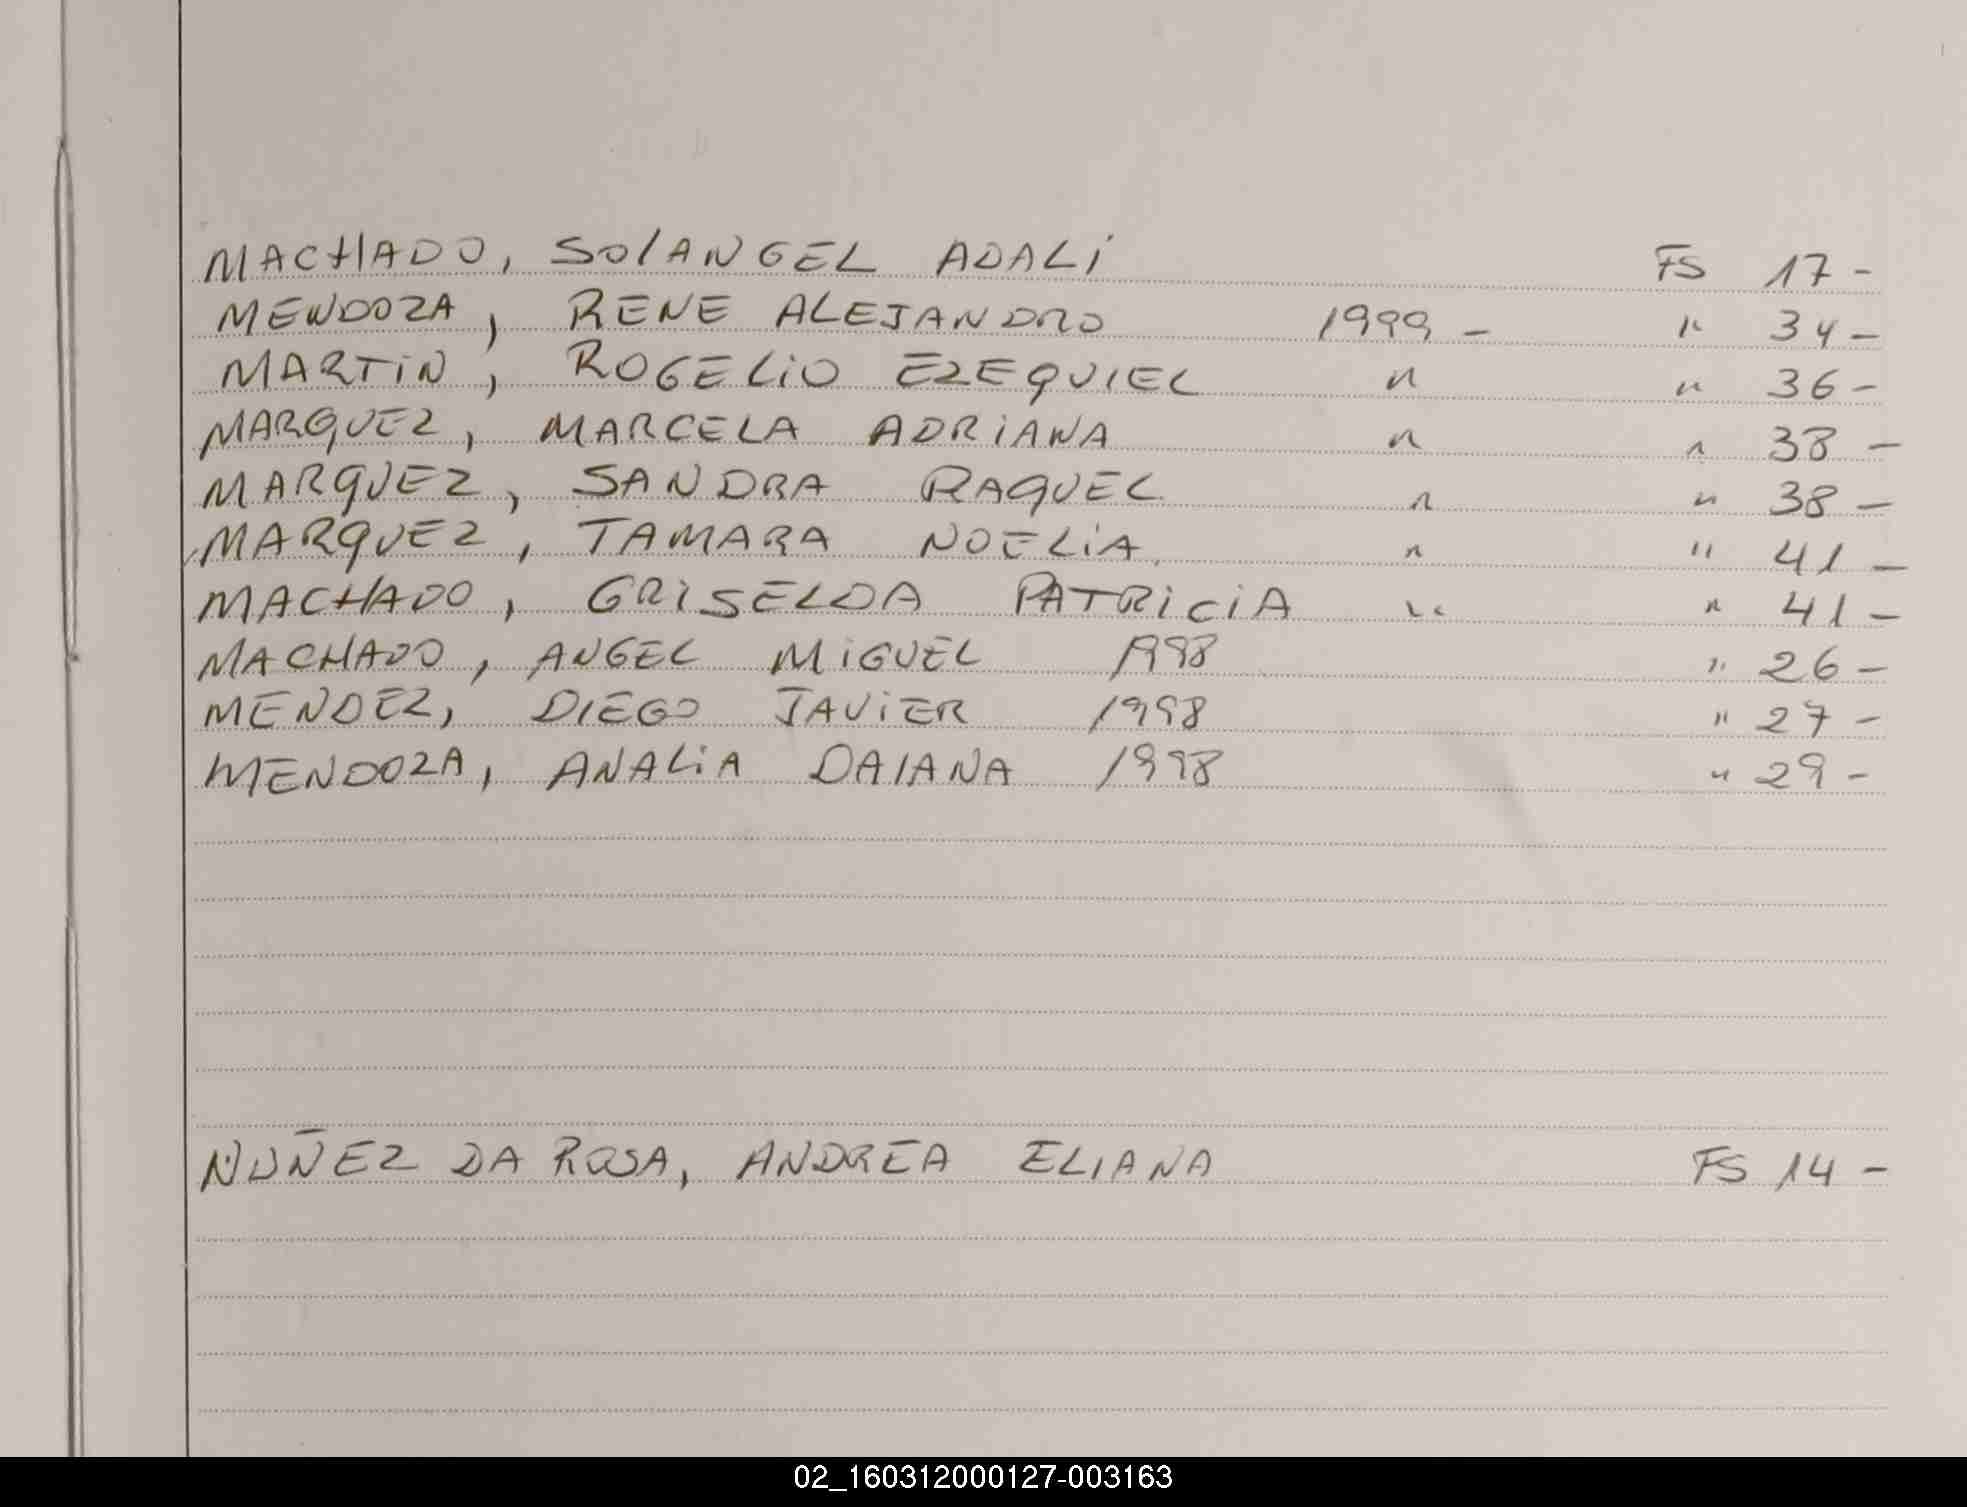 MACHADO, SOLANGEL ADALI FS 17-
MENDOZA, RENE ALEJANDRO 1999- " 34-
MARTIN, ROGELIO EZEQUIEL " " 36-
MARQUEZ, MARCELA ADRIANA " " 38-
MARQUEZ, SANDRA RAQUEL " " 38-
MARQUEZ, TAMARA NOELIA " " 41-
MACHADO, GRISELDA PATRICIA " " 41-
MACHADO, ANGEL MIGUEL 1998 " 26-
MENDEZ, DIEGO JAVIER 1998 " 27-
MENDOZA, ANALIA DAIANA 1998 " 29-
NUÑEZ DA ROSA, ANDREA ELIANA FS 14-
02_160312000127-003163